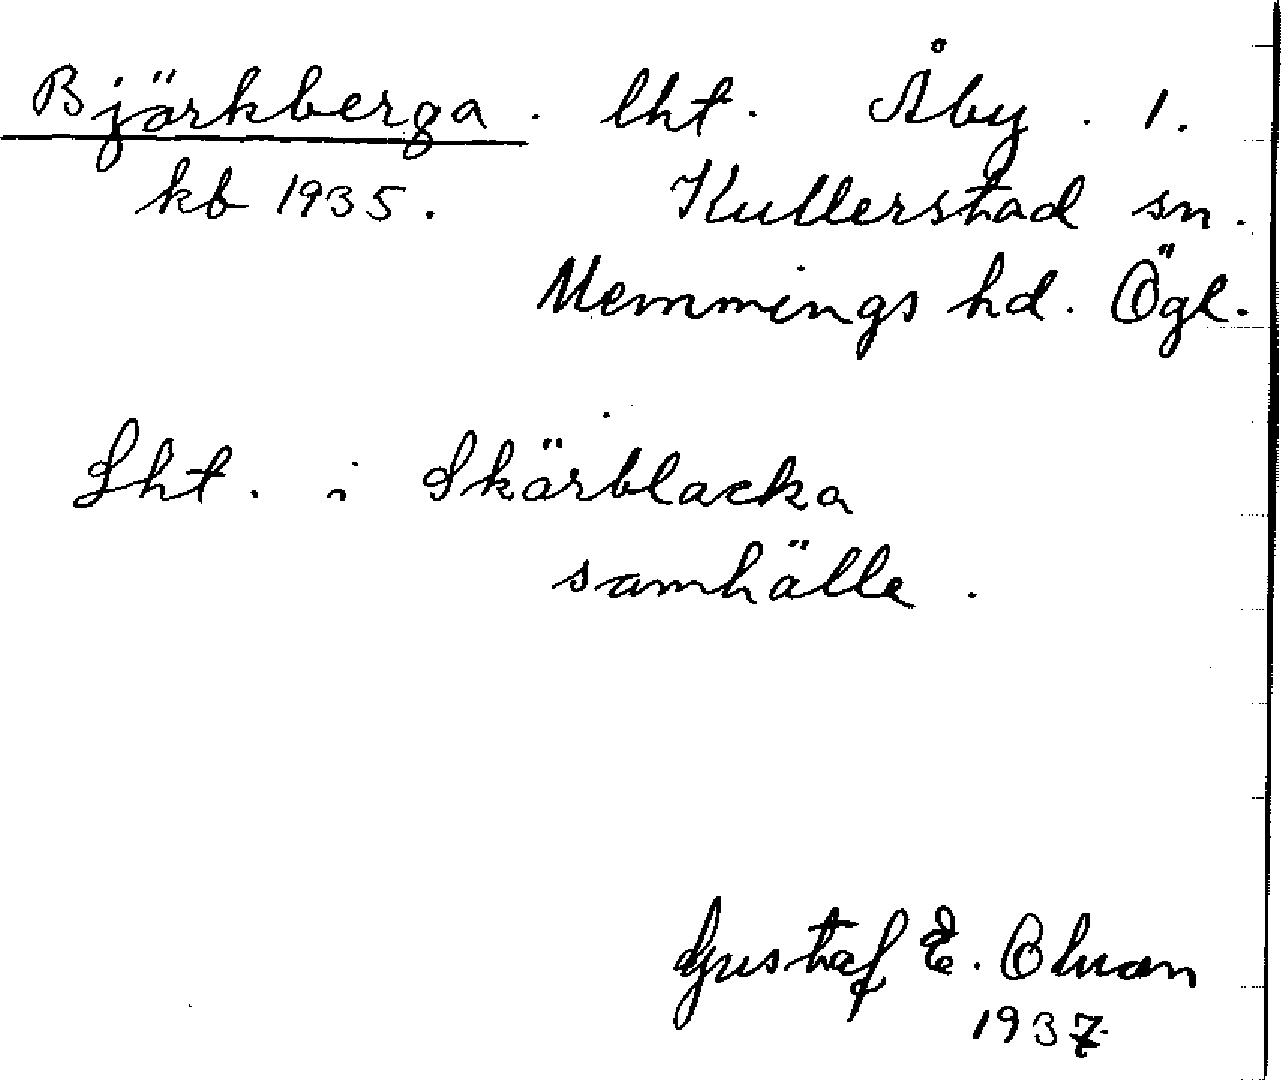 Bjärkberga. lht. Åby. 1.
kb 1935. Kullerstad sn.
Memmings hd. Ögl.
Lht. i Skärblacka
samhälle.
Gustaf E.
1937